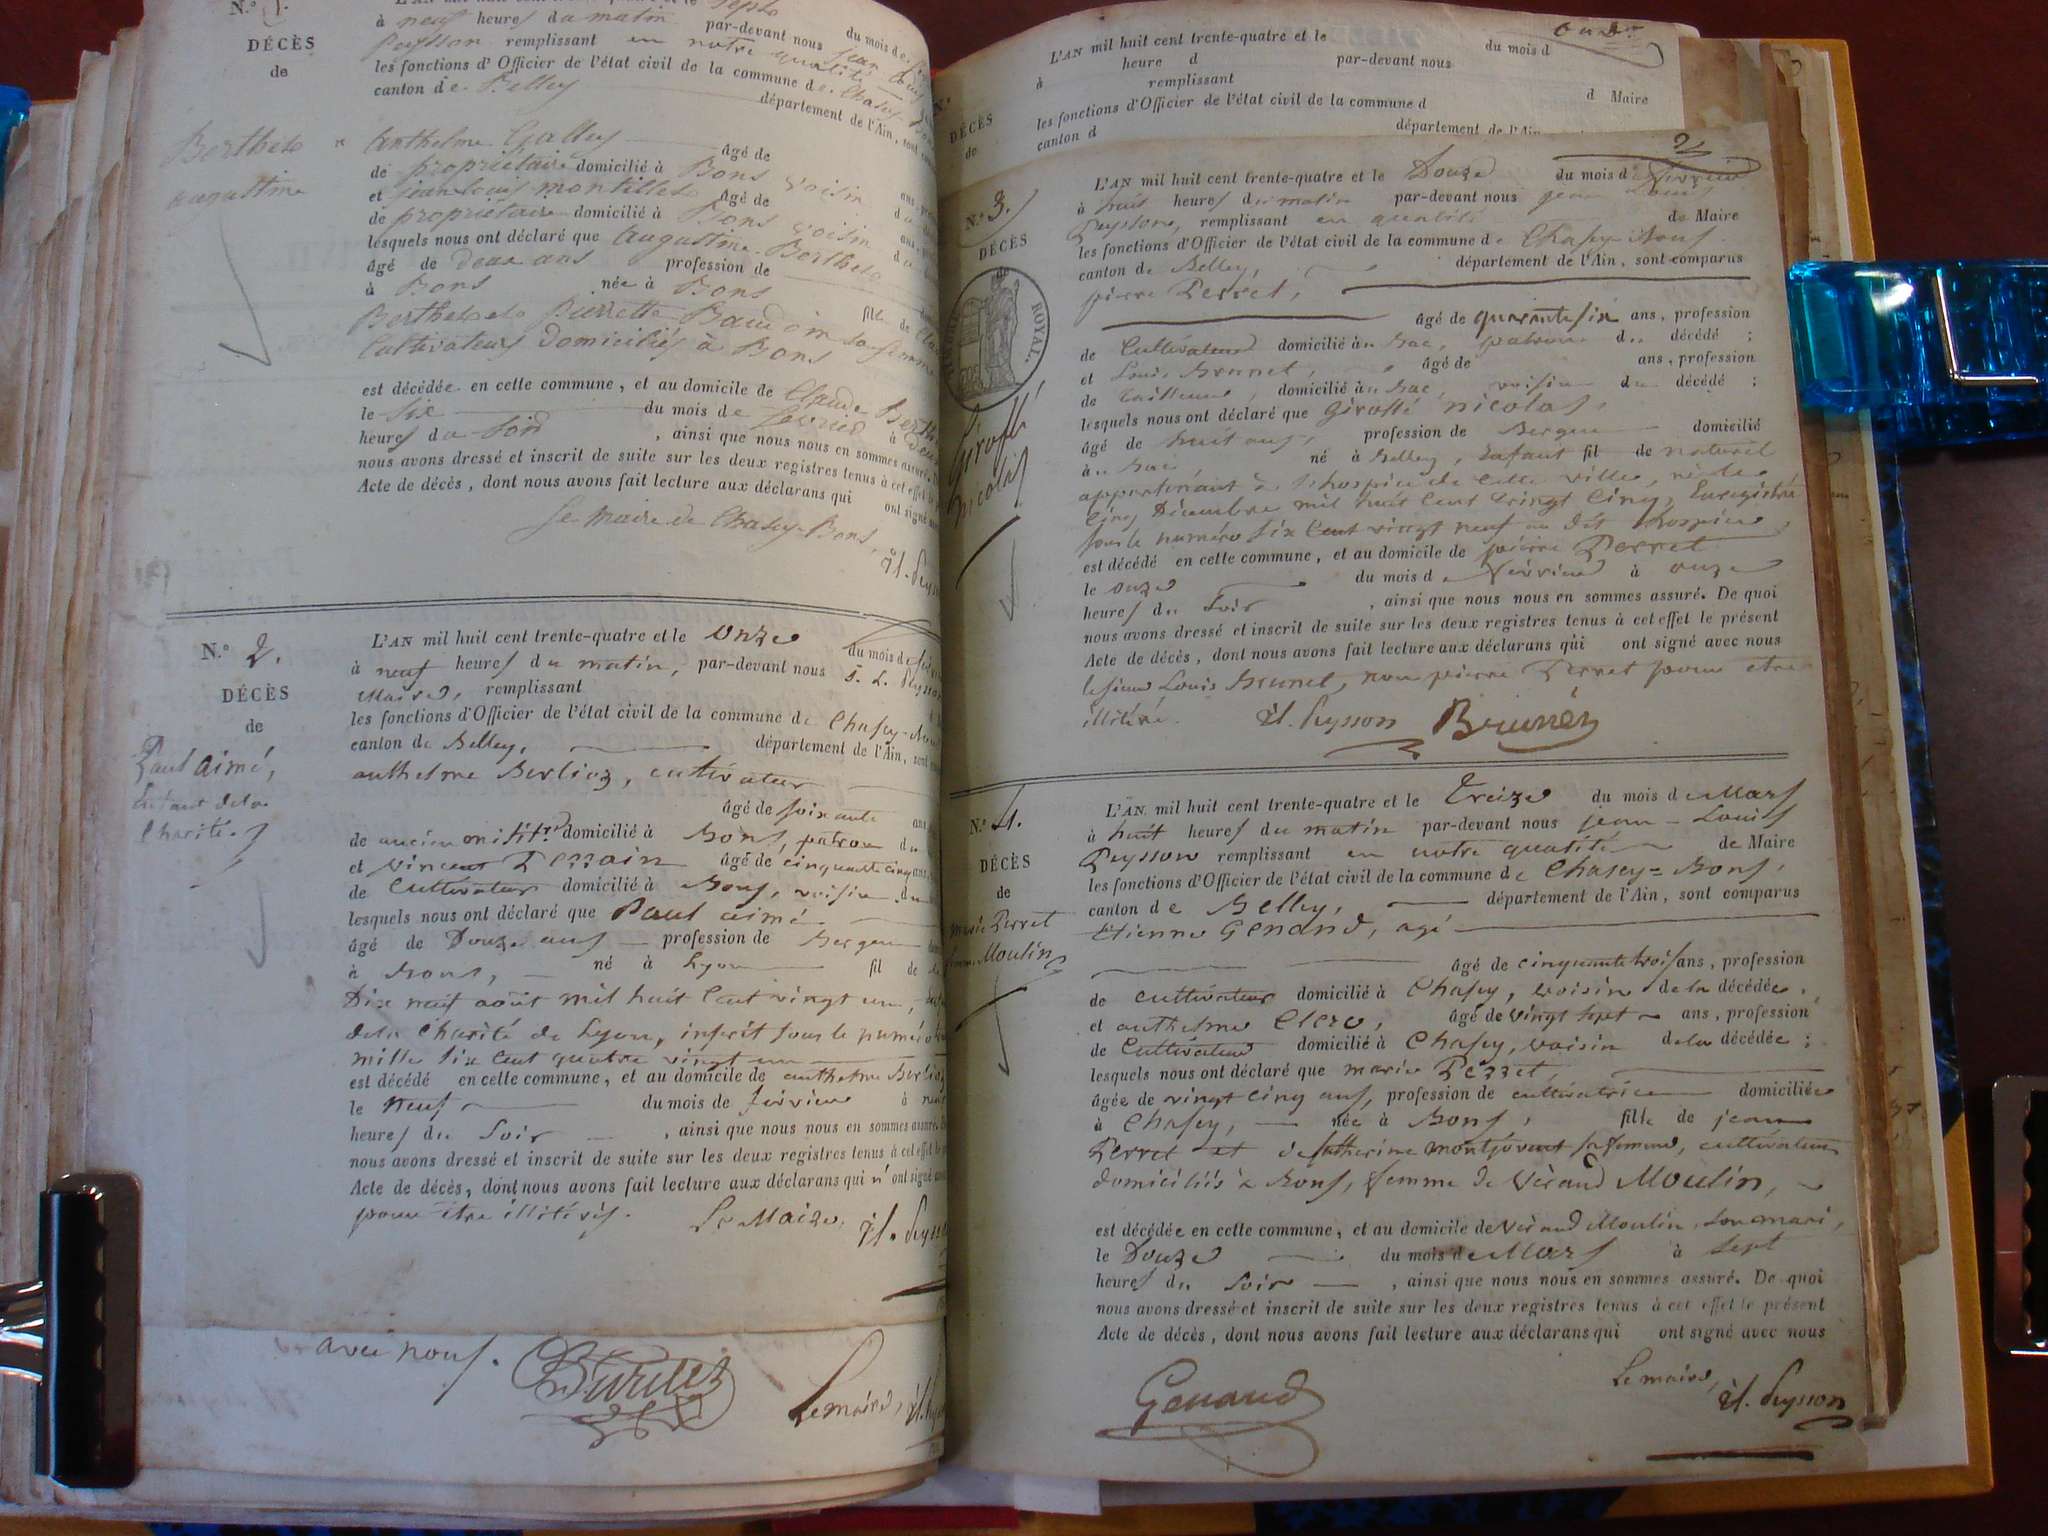 N.º 1.
DÉCÈS
de
Berthet
augustine
à neuf heures du matin par-devant nous
Peysson remplissant en notre qualité
les fonctions d'Officier de l'état civil de la commune de Chasey
canton de Belley département de l'Ain,
Anthelme Galley âgé de
de propriétaire domicilié à Bons voisin
et jean Louis montillet âgé de
de propriétaire domicilié à Bons voisin
lesquels nous ont déclaré que augustine Berthet
âgé de deux ans profession de
à Bons née à Bons
fille de
Berthet et de Pierrette Baudoin sa femme
Cultivateurs Domiciliés à Bons
est décédée en cette commune, et au domicile de Claude Berthet
le six du mois de fevrier à
heures du soir, ainsi que nous nous en sommes assuré.
nous avons dressé et inscrit de suite sur les deux registres tenus à cet effet
Acte de décès, dont nous avons fait lecture aux déclarans qui ont signé
Le Maire de Chasey-Bons,
J.L. Peysson
N.º 2.
DÉCÈS
de
Paul aimé,
Enfant de la
Charité.
L'AN mil huit cent trente-quatre et le onze du mois de fevrier
à neuf heures du matin, par-devant nous J. L. Peysson
Maire, remplissant
les fonctions d'Officier de l'état civil de la commune de Chasey-Bons
canton de Belley, département de l'Ain, sont
anthelme Berlioz, cultivateur
âgé de soixante ans
de ancien milit.re domicilié à Bons, patron du
et Vincent Perrain âgé de cinquante cinq ans
de Cultivateur domicilié à Bons, voisin du
lesquels nous ont déclaré que Paul aimé
âgé de Douze ans profession de Berger
à Bons, né à Lyon fil de
Dix neuf août mil huit cent vingt un,
de la Charité de Lyon, inscrit sous le numéro
mille six cent quatre vingt un
est décédé en cette commune, et au domicile de anthelme Berlioz
le neuf du mois de fevrier à
heures du soir, ainsi que nous nous en sommes assuré.
nous avons dressé et inscrit de suite sur les deux registres tenus à cet effet le
Acte de décès, dont nous avons fait lecture aux déclarans qui n'ont signé
pour être illitérés. Le Maire, J.L. Peysson
avec nous. Le maire,
L'AN mil huit cent trente-quatre et le du mois d
à heure d par-devant nous
remplissant d Maire
les fonctions d'Officier de l'état civil de la commune d
canton d département de l'Ain
N.º
DÉCÈS
de
N.º 3.
DÉCÈS
de
ROYAL.
Giroffé
nicolas
L'AN mil huit cent trente-quatre et le Douze du mois de fevrier
à huit heures du matin par-devant nous jean Louis
Peysson, remplissant en qualité de Maire
les fonctions d'Officier de l'état civil de la commune de Chasey-Bons
canton de Belley, département de l'Ain, sont comparus
pierre Perret,
âgé de quarante six ans, profession
de Cultivateur domicilié au Bac, patron du décédé;
et Louis Brunet, âgé de ans, profession
de tailleur, domicilié au Bac, voisin du décédé;
lesquels nous ont déclaré que Giroffé nicolas,
âgé de huit ans, profession de Berger domicilié
au Bac, né à Belley, enfant fil de naturel
appartenant à l'hospice de cette ville, né le
Cinq Décembre mil huit cent vingt cinq, Enregistré
sous le numéro six cent vingt neuf au dit hospice
est décédé en cette commune, et au domicile de pierre Perret
le onze du mois de fevrier à onze
heures du soir, ainsi que nous nous en sommes assuré. De quoi
nous avons dressé et inscrit de suite sur les deux registres tenus à cet effet le présent
Acte de décès, dont nous avons fait lecture aux déclarans qui ont signé avec nous
le sieur Louis Brunet, non pierre Perret pour etre
illitéré. J.L. Peysson Brunet
N.º 4.
DÉCÈS
de
marie Perret
femme Moulin
L'AN mil huit cent trente-quatre et le Treize du mois de Mars
à huit heures du matin par-devant nous jean-Louis
Peysson remplissant en notre qualité de Maire
les fonctions d'Officier de l'état civil de la commune de Chasey=Bons,
canton de Belley, département de l'Ain, sont comparus
Etienne Genand, agé
âgé de cinquante trois ans, profession
de cultivateur domicilié à Chasey, voisin de la décédée,
et anthelme Clerc, âgé de vingt sept ans, profession
de Cultivateur domicilié à Chasey, voisin de la décédée;
lesquels nous ont déclaré que marie Perret,
âgée de vingt cinq ans, profession de cultivatrice domiciliée
à Chasey, née à Bons, fille de jean
Perret et de Catherine montjovent sa femme, cultivateurs
domiciliés à Bons, femme de Vérand Moulin,
est décédée en cette commune, et au domicile de Vérand Moulin, son mari,
le Douze du mois de Mars à sept
heures du soir, ainsi que nous nous en sommes assuré. De quoi
nous avons dressé et inscrit de suite sur les deux registres tenus à cet effet le présent
Acte de décès, dont nous avons fait lecture aux déclarans qui ont signé avec nous
Genand Le maire, J.L. Peysson